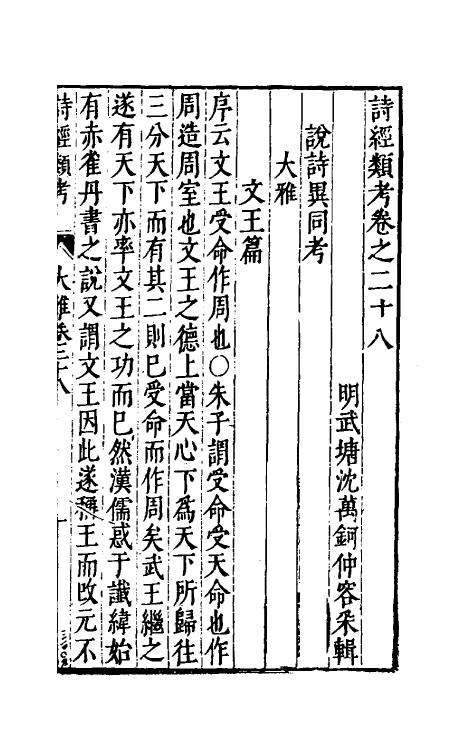 詩經類考卷之二十八
明武塘沈萬鈳仲容采輯
說詩異同考
大雅
文王篇
序云文王受命作周也○朱子謂受命受天命也作
周造周室也文王之德上當天心下爲天下所歸往
三分天下而有其二則已受命而作周矣武王繼之
遂有天下亦率文王之功而已然漢儒惑于讖緯始
有赤雀丹書之說又謂文王因此遂稱王而改元不
詩經類考 大雅卷二十八 一